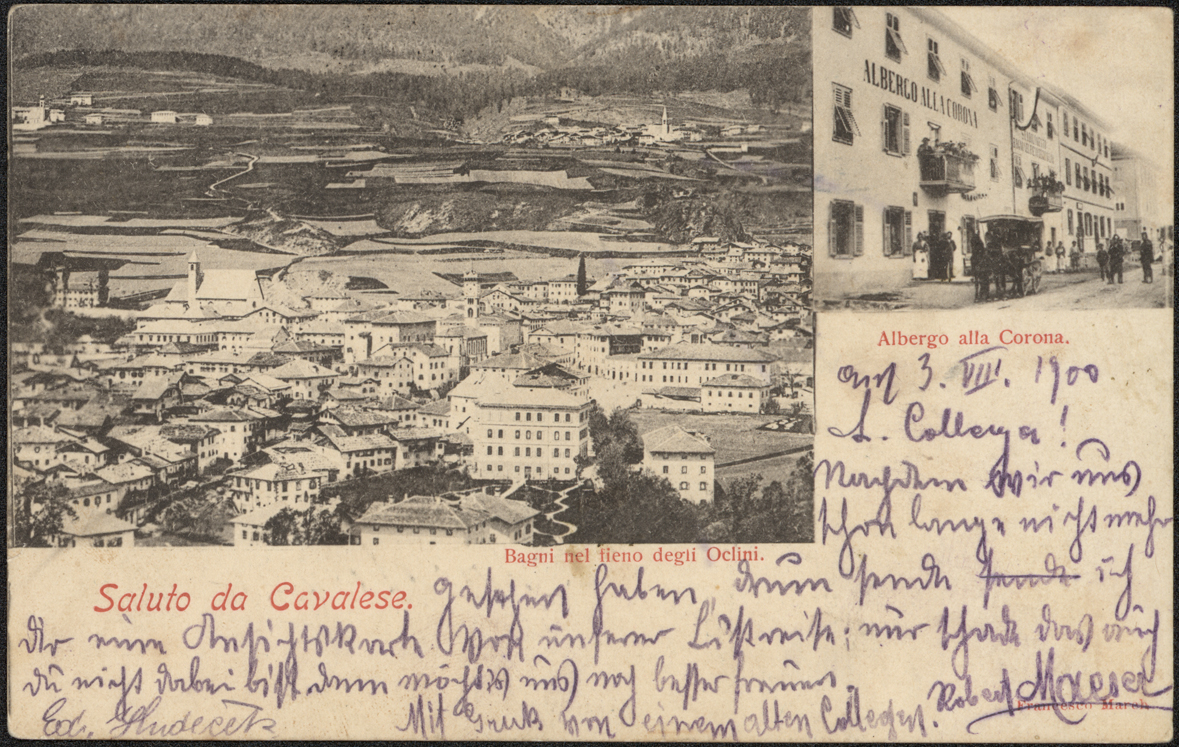 ALBERGO ALLA CORONA
Albergo alla Corona.
am 3. VIII. 1900
L. Collega!
Nachdem wir uns
schon lange nicht mehr
Bagni nel fieno degli Oclini.
Saluto da Cavalese.
gesehen haben, drum sende sende ich
dir eine Ansichtskarte von unserer Lustreise; nur schade das auch
du nicht dabei bist, denn möchts uns noch besser freuen.
Mit Gruß von einem alten Collegen. Robert Moser
Francesco March